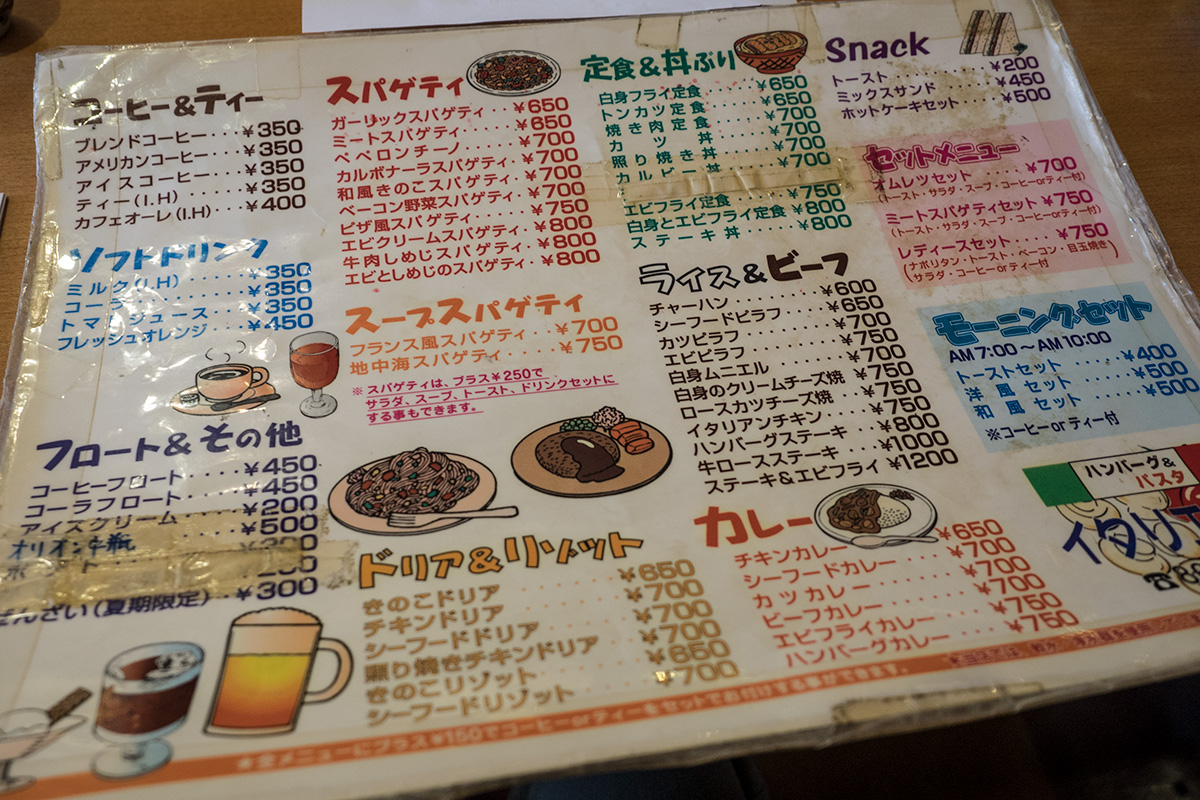 コーヒー&ティー
ブレンドコーヒー・・・¥350
アメリカンコーヒー・・・¥350
アイスコーヒー・・・・¥350
ティー(I.H)・・・・・¥350
カフェオーレ(I.H)・・・¥400
ソフトドリンク
ミルク(I.H)・・・・¥350
コーラ・・・・・・¥350
トマトジュース・・・・¥350
フレッシュオレンジ・・・¥450
フロート&その他
コーヒーフロート・・・¥450
コーラフロート・・・・¥450
アイスクリーム・・・・¥200
オリオン中瓶・・・・¥500
¥300
ぜんざい(夏期限定)・・¥300
スパゲティ
ガーリックスパゲティ・・・¥650
ミートスパゲティ・・・・・¥650
ペペロンチーノ・・・・・¥700
カルボナーラスパゲティ・・¥700
和風きのこスパゲティ・・・¥700
ベーコン野菜スパゲティ・・¥700
ピザ風スパゲティ・・・・¥750
エビクリームスパゲティ・・¥800
牛肉しめじスパゲティ・・・¥800
エビとしめじのスパゲティ・¥800
スープスパゲティ
フランス風スパゲティ・・・¥700
地中海スパゲティ・・・・¥750
※スパゲティは、プラス¥250で
サラダ、スープ、トースト、ドリンクセットに
する事もできます。
ドリア&リゾット
きのこドリア・・・・¥650
チキンドリア・・・・¥700
シーフードドリア・・・¥700
照り焼きチキンドリア・・¥700
きのこリゾット・・・¥650
シーフードリゾット・・・¥700
定食&丼ぶり
白身フライ定食・・・・¥650
トンカツ定食・・・・・¥650
焼き肉定食・・・・・¥700
カツ丼・・・・・¥700
照り焼き丼・・・・・¥700
カルビー丼・・・・・¥700
エビフライ定食・・・・¥750
白身とエビフライ定食・・¥800
ステーキ丼・・・・・¥800
ライス&ビーフ
チャーハン・・・・・¥600
シーフードピラフ・・・・¥650
カツピラフ・・・・・¥700
エビピラフ・・・・・¥750
白身ムニエル・・・・・¥700
白身のクリームチーズ焼・¥750
ロースカツチーズ焼・・・¥750
イタリアンチキン・・・・¥750
ハンバーグステーキ・・・¥800
牛ロースステーキ・・・¥1000
ステーキ&エビフライ ¥1200
カレー
チキンカレー・・・・¥650
シーフードカレー・・・¥700
カツカレー・・・・¥700
ビーフカレー・・・・¥700
エビフライカレー・・・¥750
ハンバーグカレー・・・¥750
Snack
トースト・・・・・・¥200
ミックスサンド・・・・¥450
ホットケーキセット・・・¥500
セットメニュー
オムレツセット・・・・・¥700
(トースト・サラダ・スープ・コーヒーorティー付)
ミートスパゲティセット・・¥750
(トースト・サラダ・スープ・コーヒーorティー付)
レディースセット・・・・¥750
(ナポリタン・トースト・ベーコン・目玉焼き
サラダ・コーヒーorティー付)
モーニング・セット
AM7:00〜AM10:00
トーストセット・・・・¥400
洋風セット・・・・¥500
和風セット・・・・¥500
※コーヒーorティー付
ハンバーグ&
パスタ
イタリア
★全メニューにプラス¥150でコーヒーorティーをセットでお付けする事ができます。